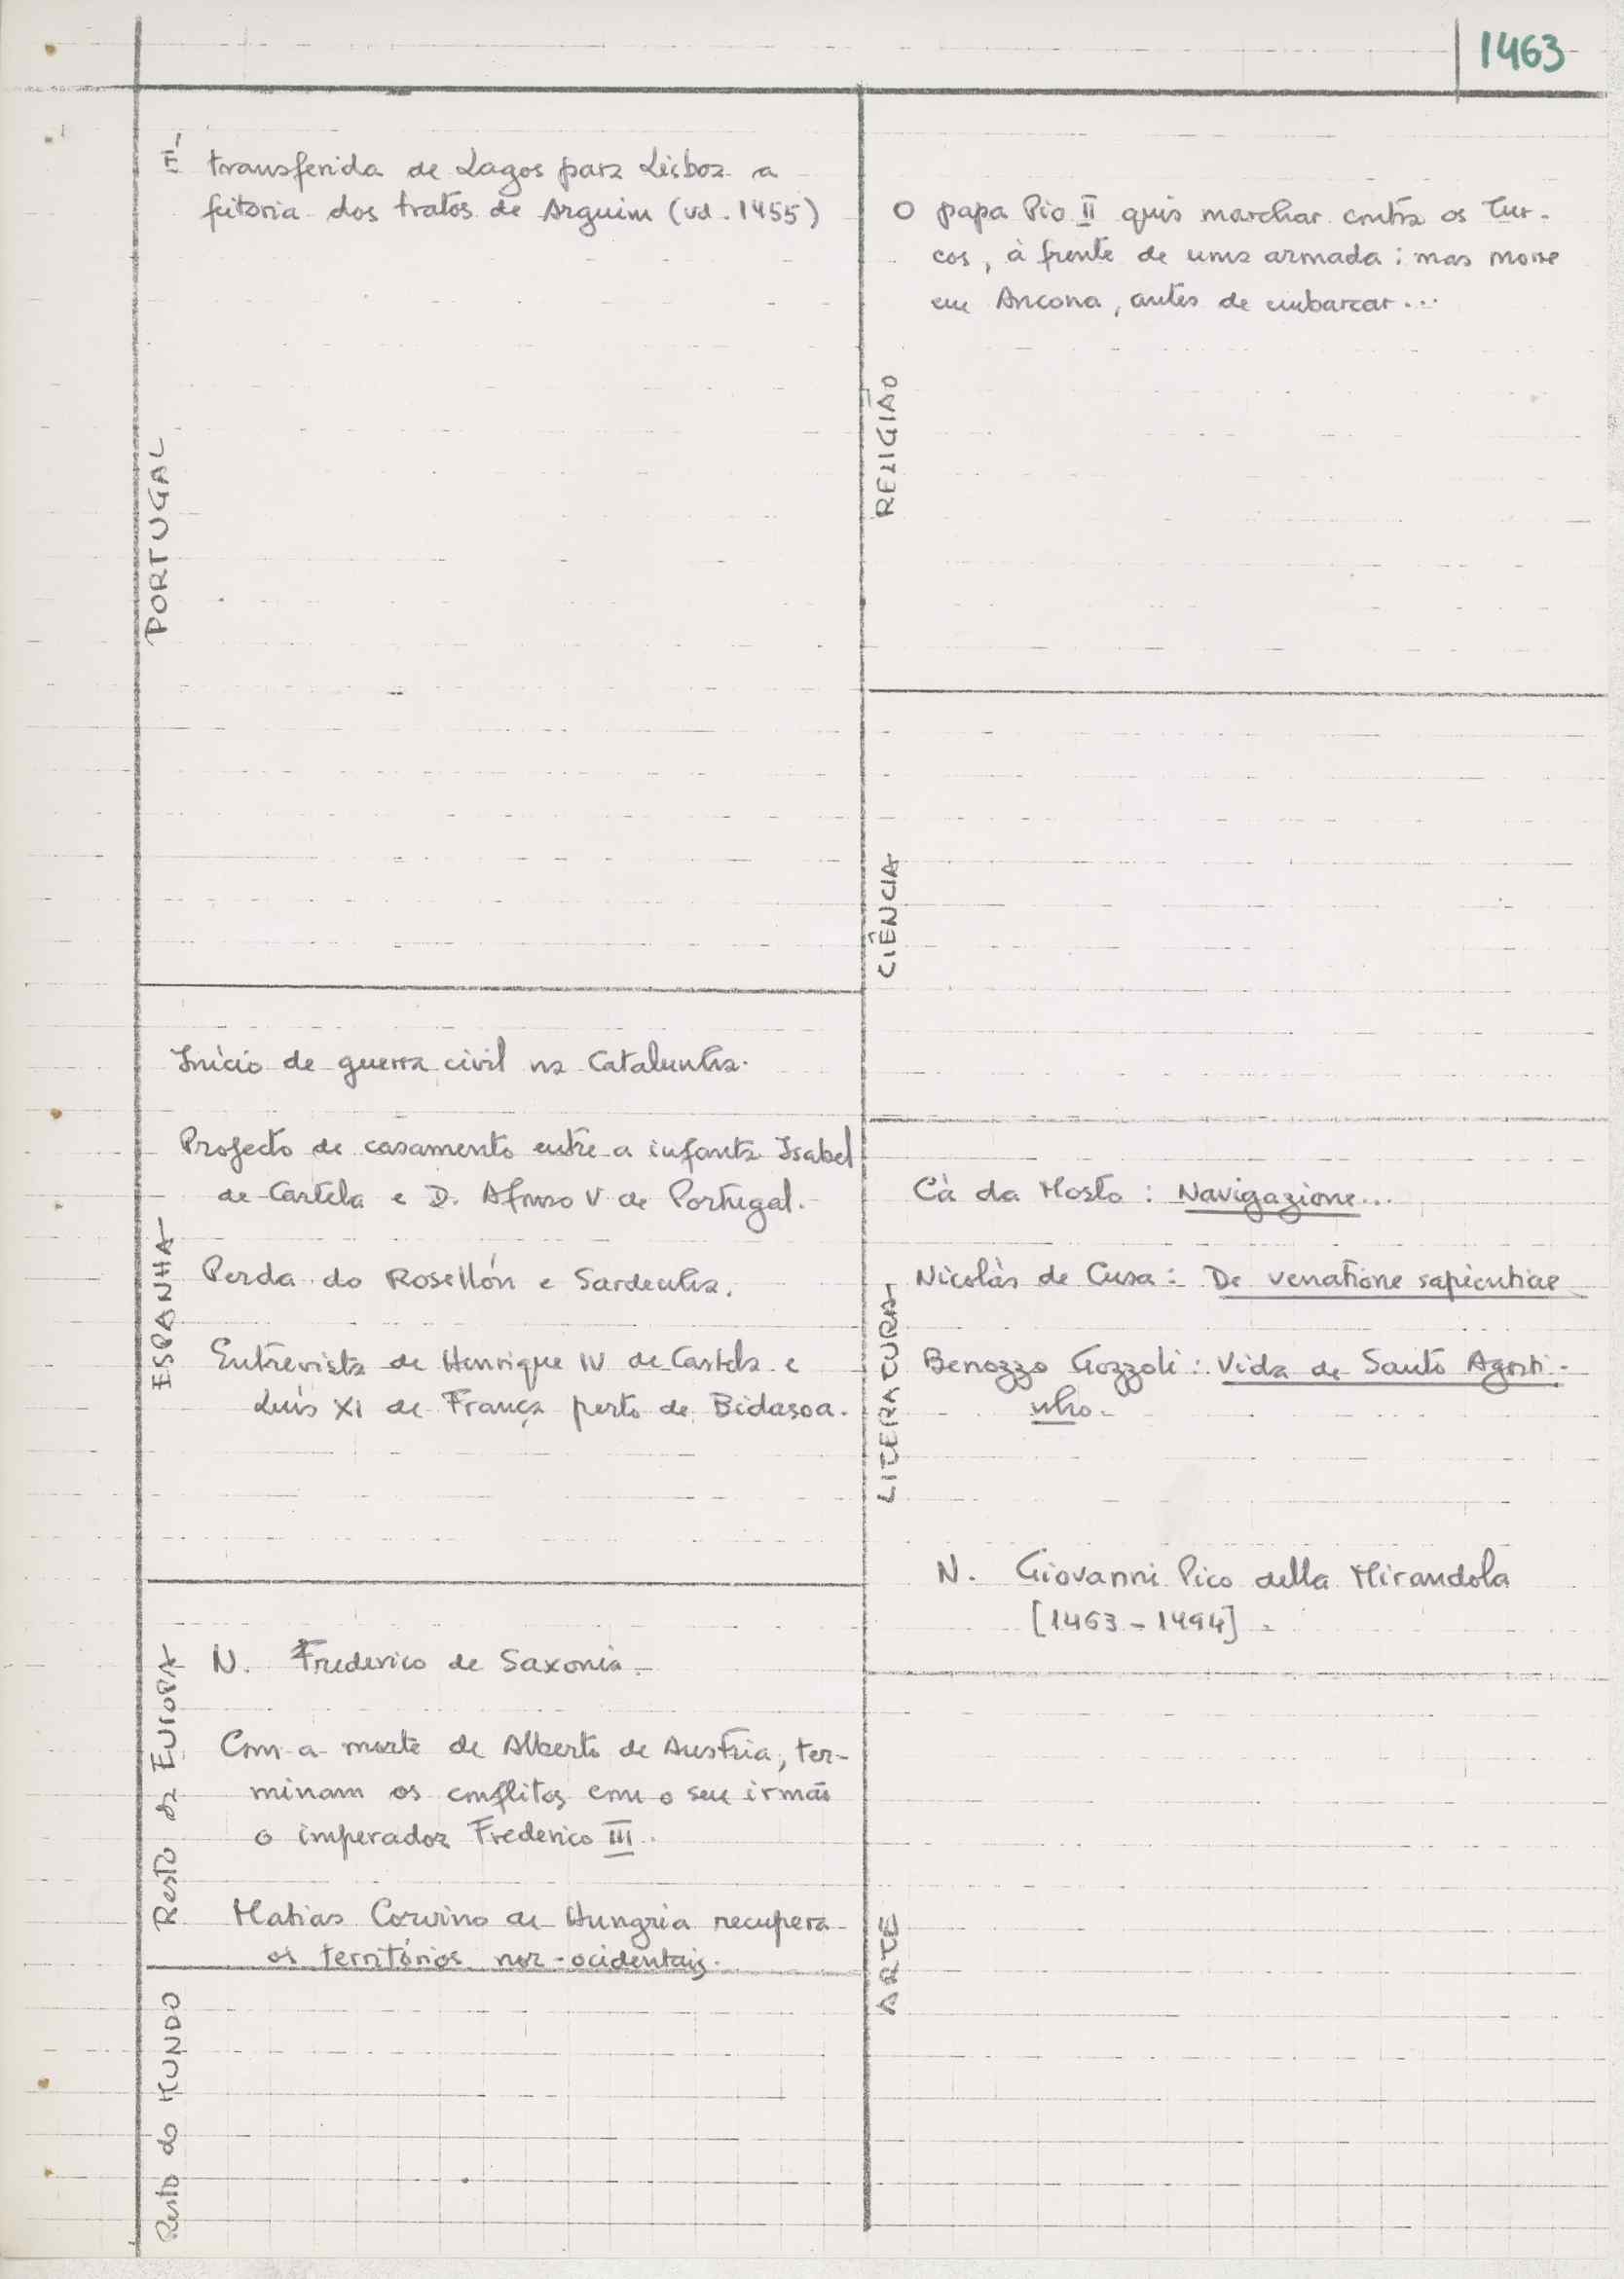 1463
PORTUGAL
É transferida de Lagos para Lisboa a
feitoria dos tratos de Arguim (vd. 1455)
ESPANHA
Início de guerra civil na Catalunha.
Projecto de casamento entre a infanta Isabel
de Castela e D. Afonso V de Portugal.
Perda do Rosellón e Sardenha.
Entrevista de Henrique IV de Castela e
Luís XI de França perto de Bidasoa.
Resto da EUROPA
N. Frederico de Saxonia.
Com a morte de Alberto de Austria, ter-
minam os conflitos com o seu irmão
o imperador Frederico III.
Matias Corvino de Hungria recupera
os territórios nor-ocidentais.
Resto do MUNDO
RELIGIÃO
O papa Pio II quis marchar contra os Tur-
cos, à frente de uma armada; mas morre
em Ancona, antes de embarcar...
CIÊNCIA
LITERATURA
Cà da Mosto: Navigazione...
Nicolàs de Cusa: De venatione sapientiae
Benozzo Gozzoli: Vida de Santo Agosti-
nho.
N. Giovanni Pico della Mirandola
[1463-1494].
ARTE